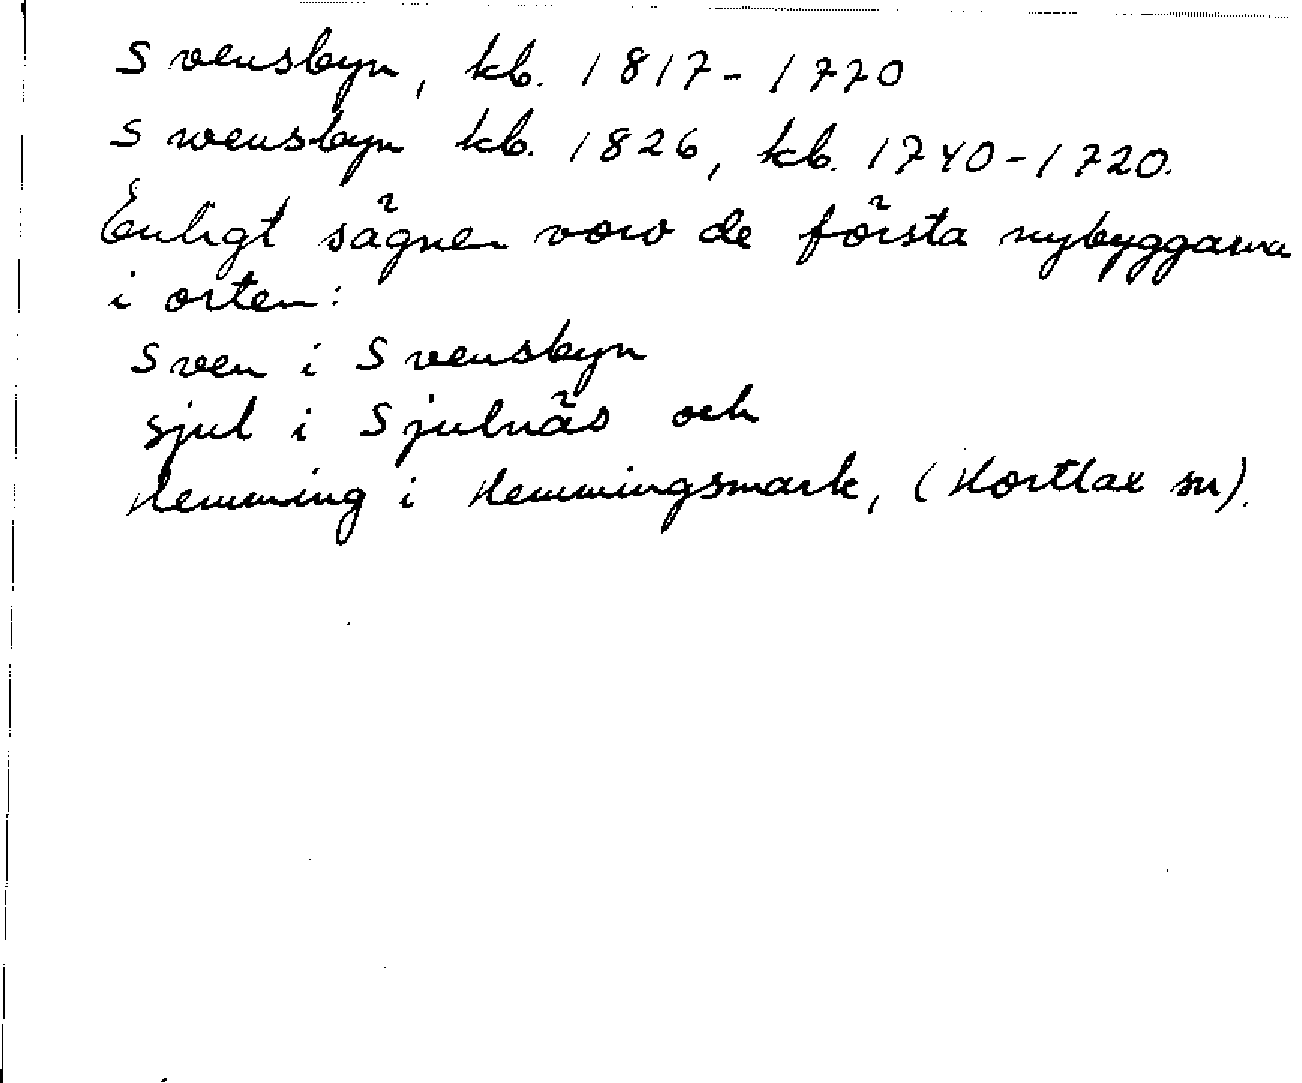 Svensbyn, kb. 1817-1770
Swensbyn kb. 1826, kb. 1740-1720.
Enligt sägnen voro de första nybyggarna
i orten:
Sven i Svensbyn
Sjul i Sjulnäs och
Hemming i Hemmingsmark, (Hortlax sn).